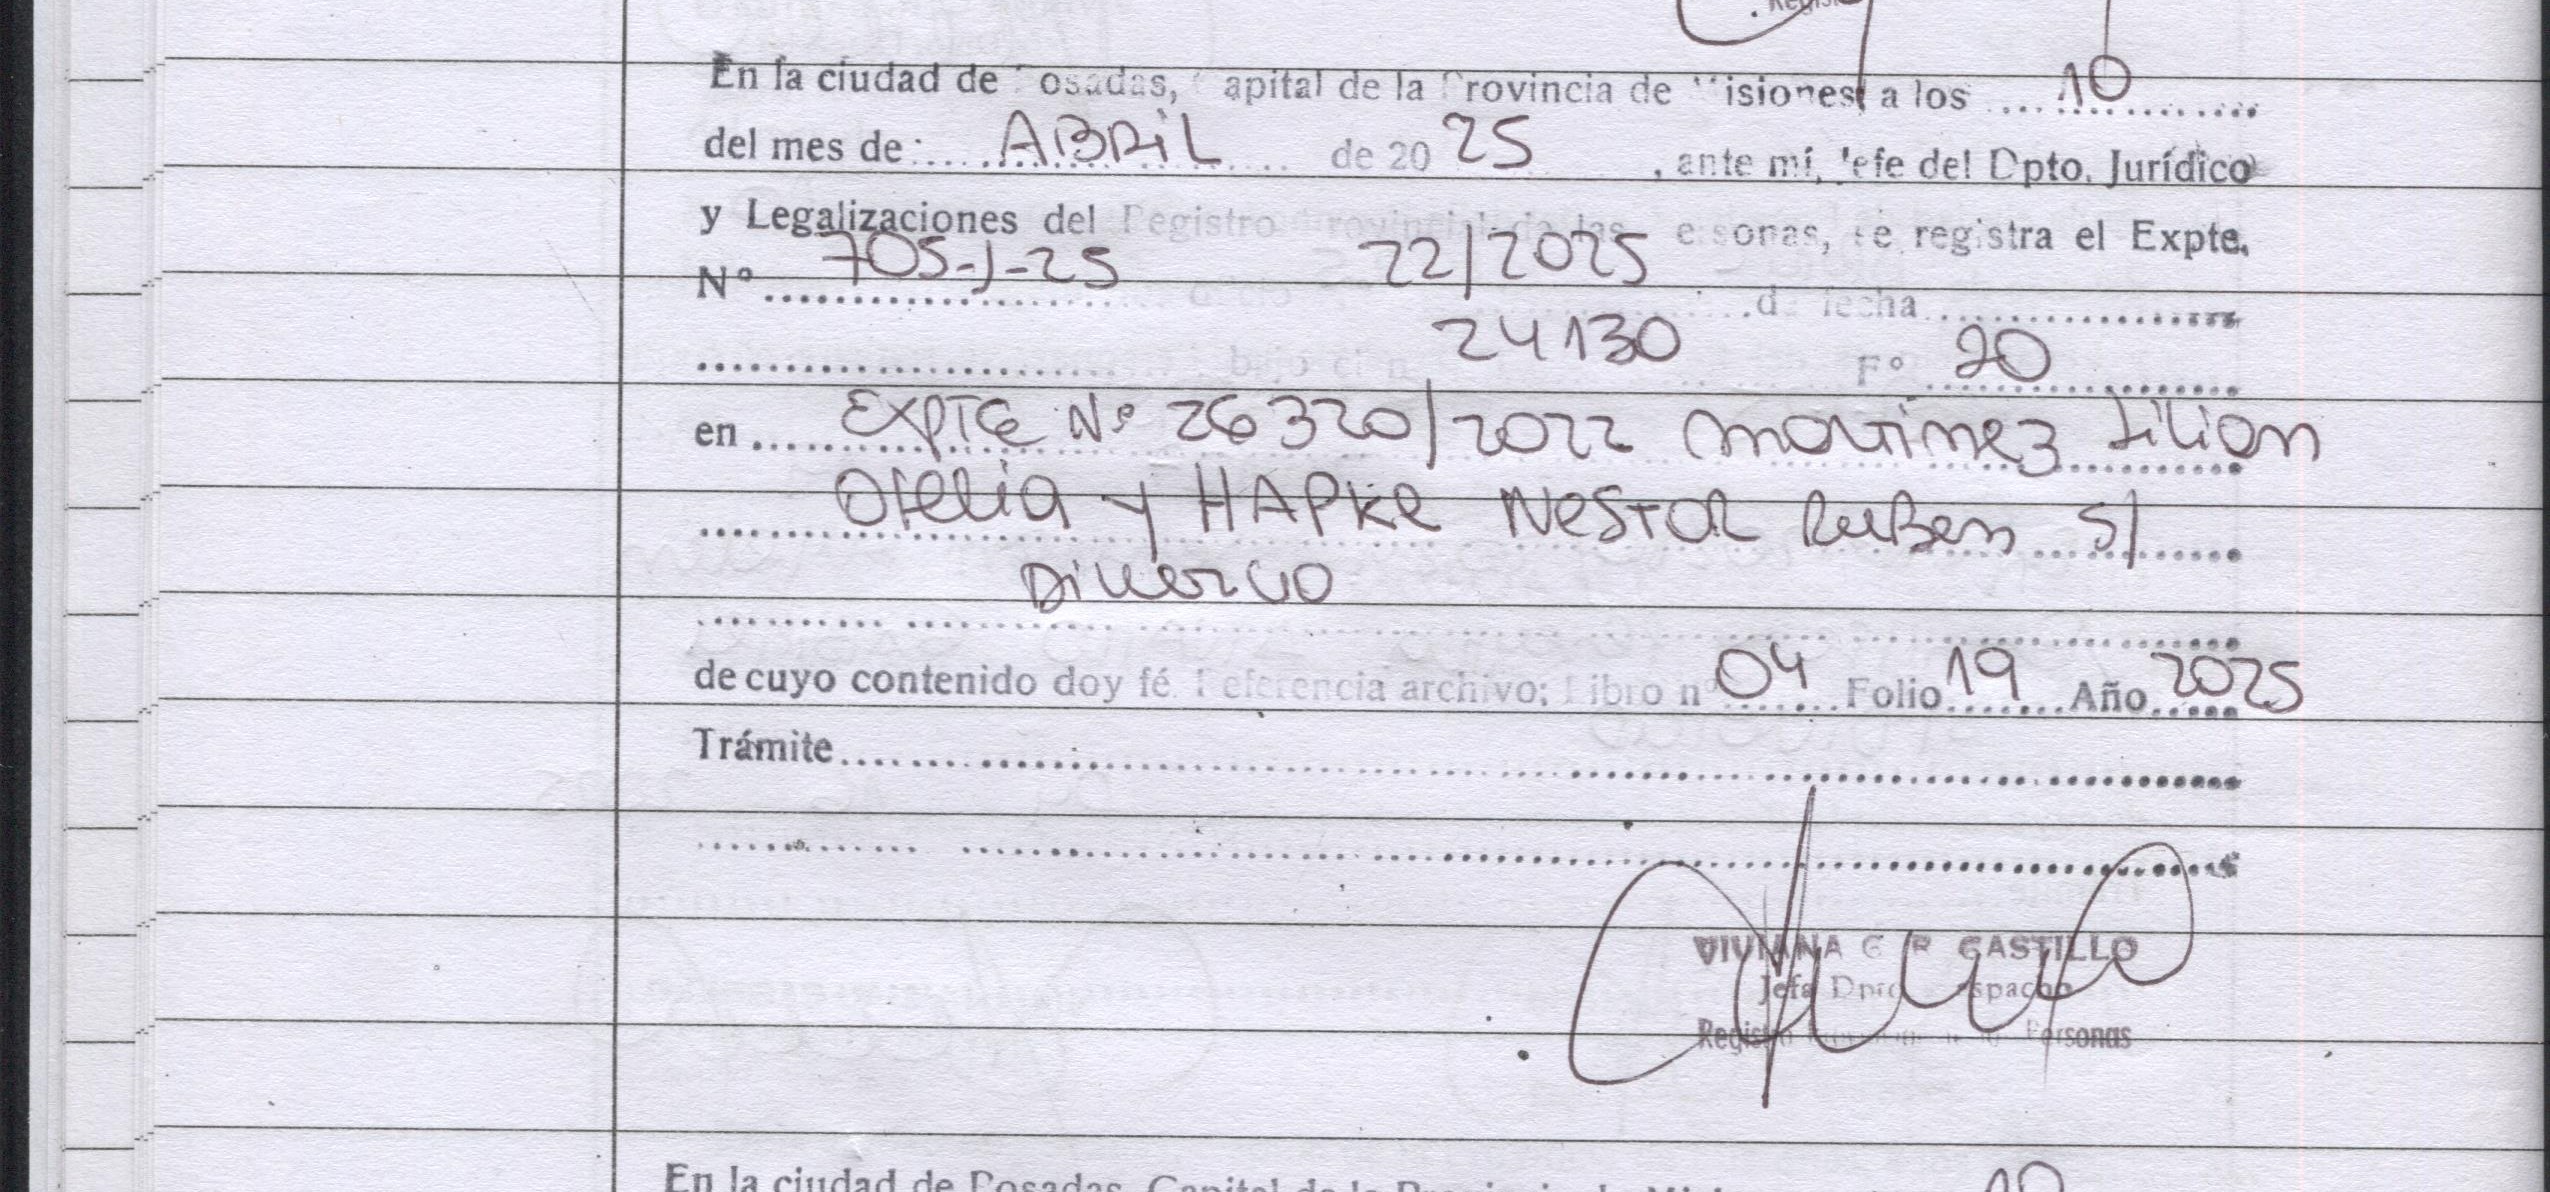 En la ciudad de Posadas, Capital de la Provincia de Misiones, a los .... 10 ....
del mes de: .... ABRIL .... de 20 25 , ante mí, Jefe del Dpto. Jurídico
y Legalizaciones del Registro Provincial de las Personas, se registra el Expte.
N° .... 705-J-25 22/2025 .... de fecha ....
.... bajo el n 24130 F° 20 ....
en .... EXPTE N° 26320/2022 Martinez Lilian
Ofelia y HAPKE NESTOR Ruben S/
Divorcio
de cuyo contenido doy fé. Referencia archivo; Libro n° 04 Folio 19 Año 2025
Trámite ....
VIVIANA CASTILLO
Jefa Dpto Despacho
Registro Personas
En la ciudad de Posadas, Capital de la Provincia 10